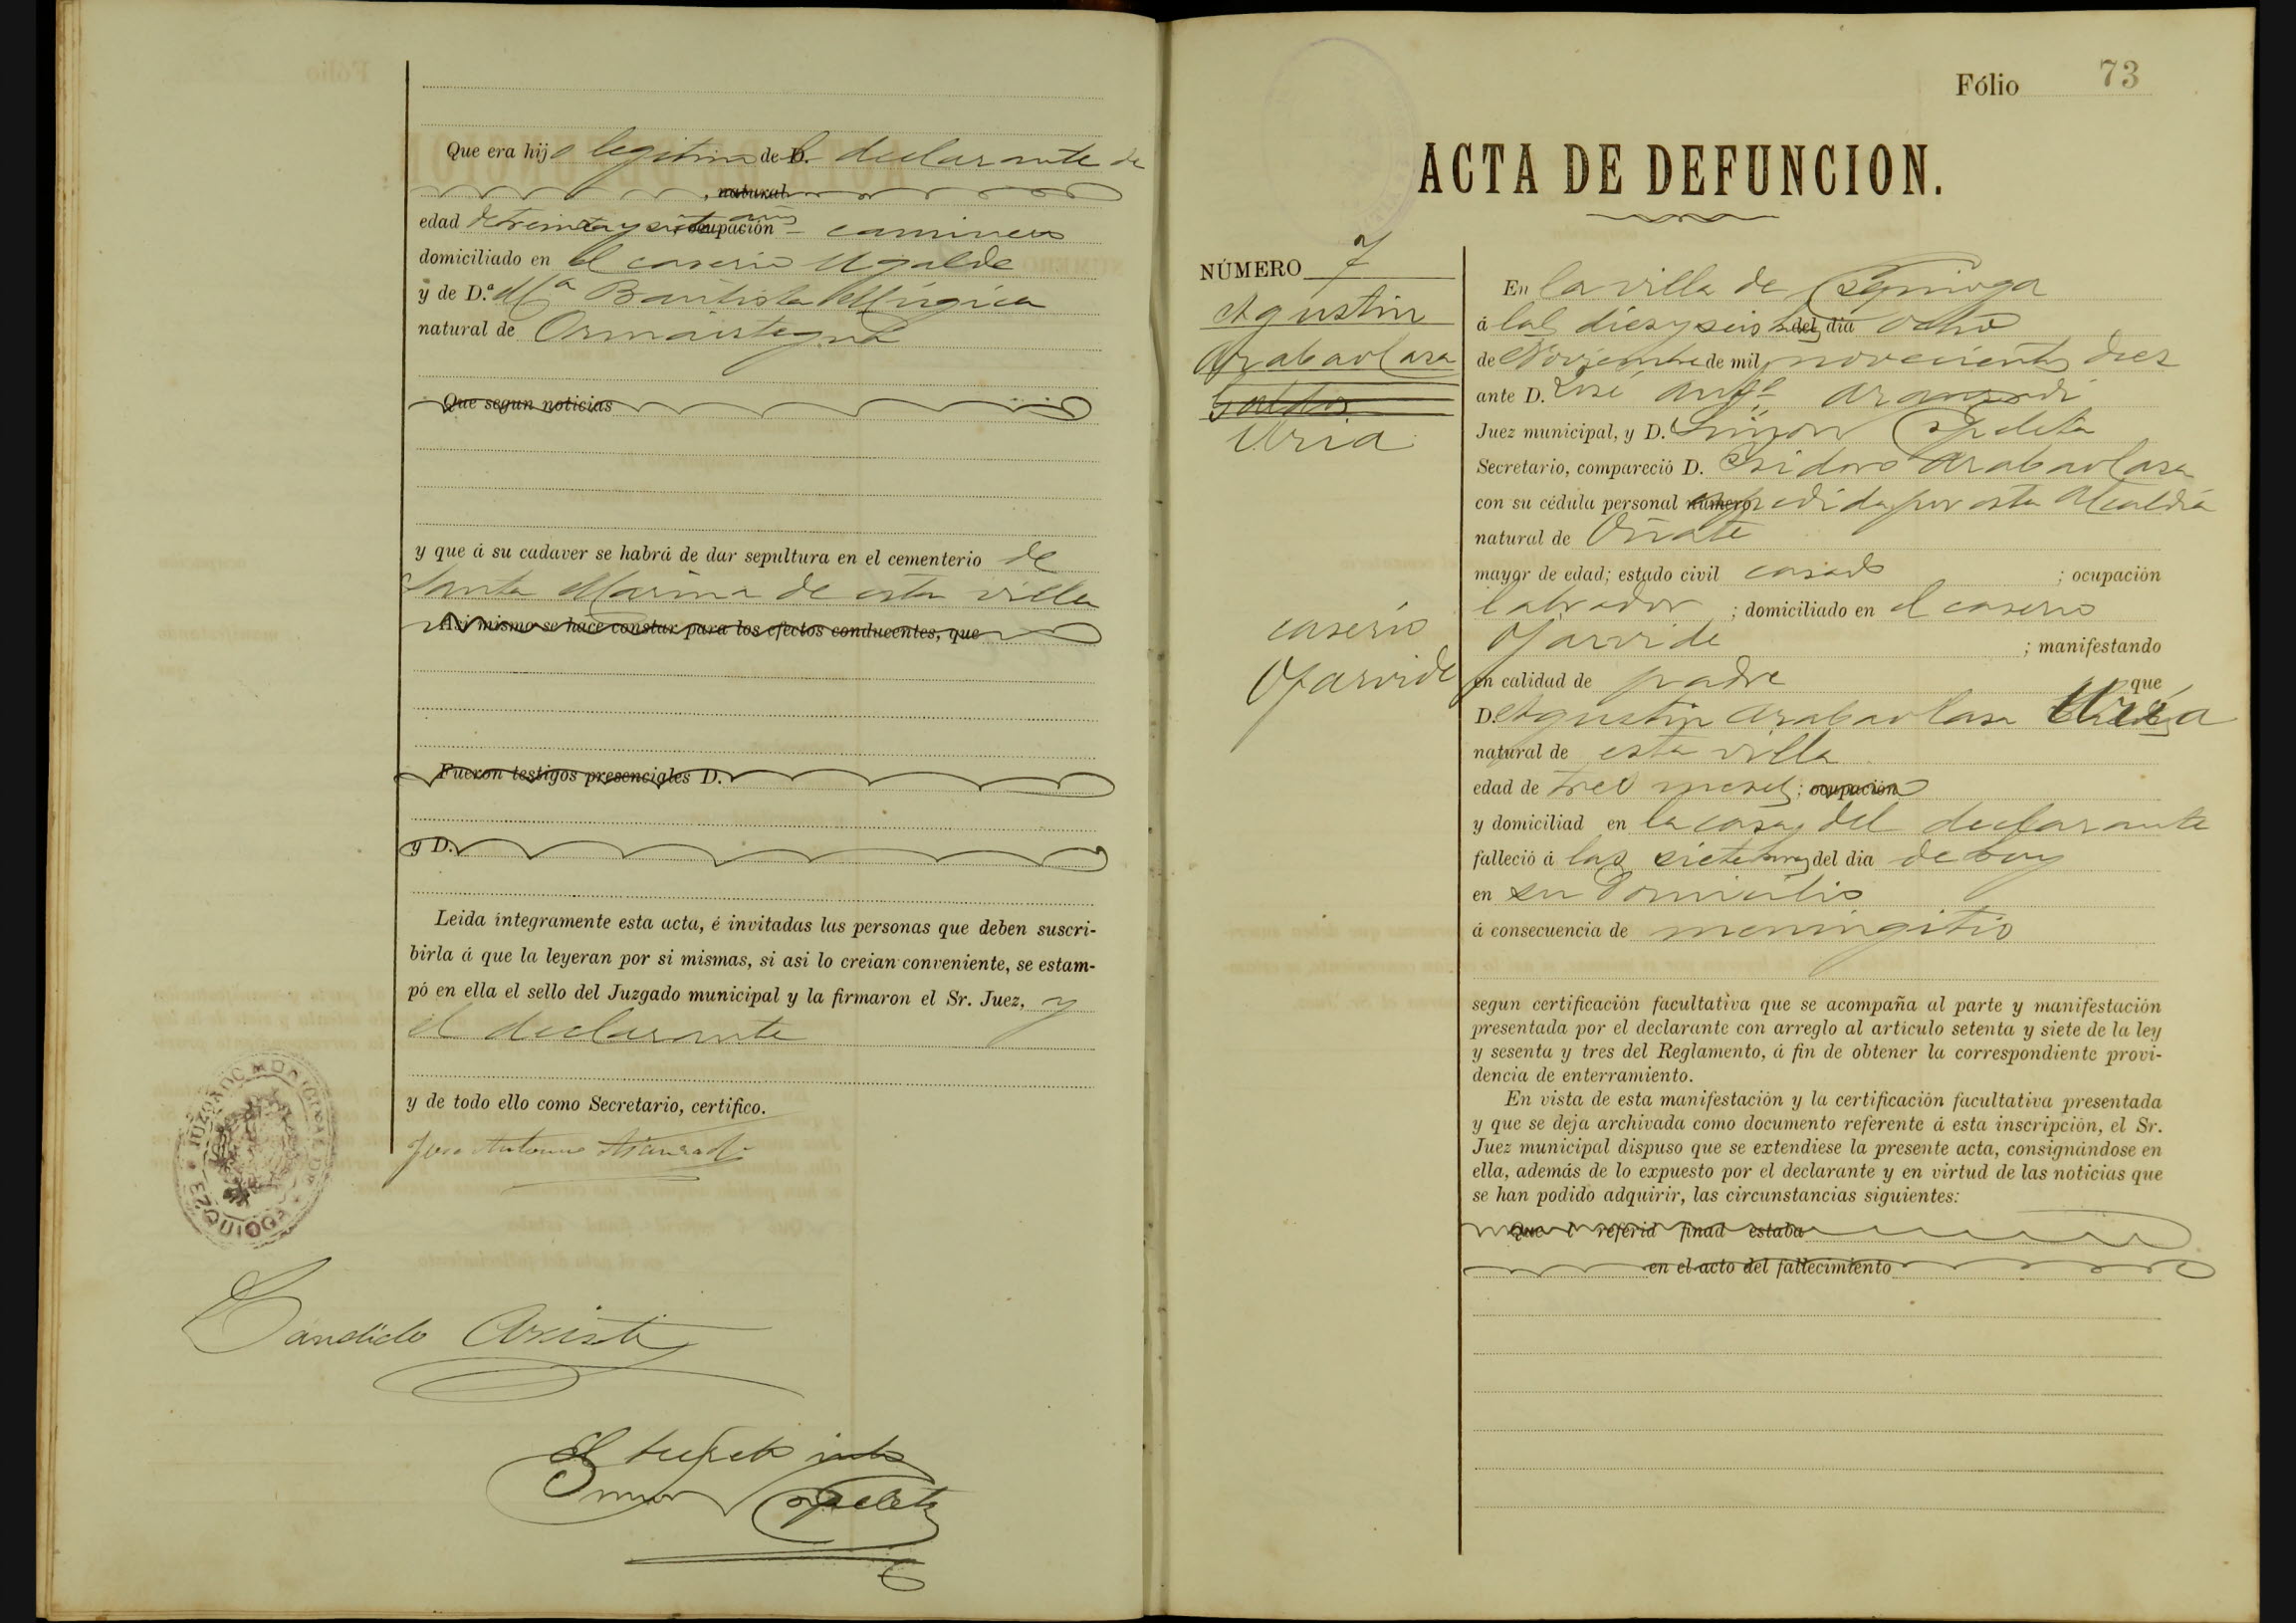 Que era hijo legitimo de D. declarante de
natural
edad de treinta y siete años ocupación caminero
domiciliado en el caserio Ugalde
y de D.ª Mª Bautista Múgica
natural de Ormaiztegui
Que segun noticias
y que á su cadaver se habrá de dar sepultura en el cementerio de
Santa Marina de esta villa
Asi mismo se hace constar para los efectos conducentes, que
Fueron testigos presenciales D.
y D.
Leida íntegramente esta acta, é invitadas las personas que deben suscri-
birla á que la leyeran por si mismas, si asi lo creian conveniente, se estam-
pó en ella el sello del Juzgado municipal y la firmaron el Sr. Juez, y
el declarante
y de todo ello como Secretario, certifico.
José Antonio
JUZGADO MUNICIPAL DE
Candido Aristi
El
Simon
Fólio 73
ACTA DE DEFUNCION.
NÚMERO 7
Agustin
Arabaolaza
Uria
caserio
Ojarvide
En la villa de
á las diez y seis horas del dia ocho
de Noviembre de mil novecientos diez
ante D. José Antº
Juez municipal, y D. Simon
Secretario, compareció D. Isidoro Arabaolaza
con su cédula personal número expedida por esta Alcaldia
natural de Oñate
mayor de edad; estado civil casado ; ocupación
labrador ; domiciliado en el caserio
Ojarvide ; manifestando
en calidad de padre que
D. Agustin Arabaolaza Uria
natural de esta villa
edad de tres meses; ocupación
y domiciliad en la casa del declarante
falleció á las siete horas del dia de hoy
en su domicilio
á consecuencia de meningitis
segun certificación facultativa que se acompaña al parte y manifestación
presentada por el declarante con arreglo al articulo setenta y siete de la ley
y sesenta y tres del Reglamento, á fin de obtener la correspondiente provi-
dencia de enterramiento.
En vista de esta manifestación y la certificación facultativa presentada
y que se deja archivada como documento referente á esta inscripción, el Sr.
Juez municipal dispuso que se extendiese la presente acta, consignándose en
ella, además de lo expuesto por el declarante y en virtud de las noticias que
se han podido adquirir, las circunstancias siguientes:
Que l referid finad estaba
en el acto del fallecimiento